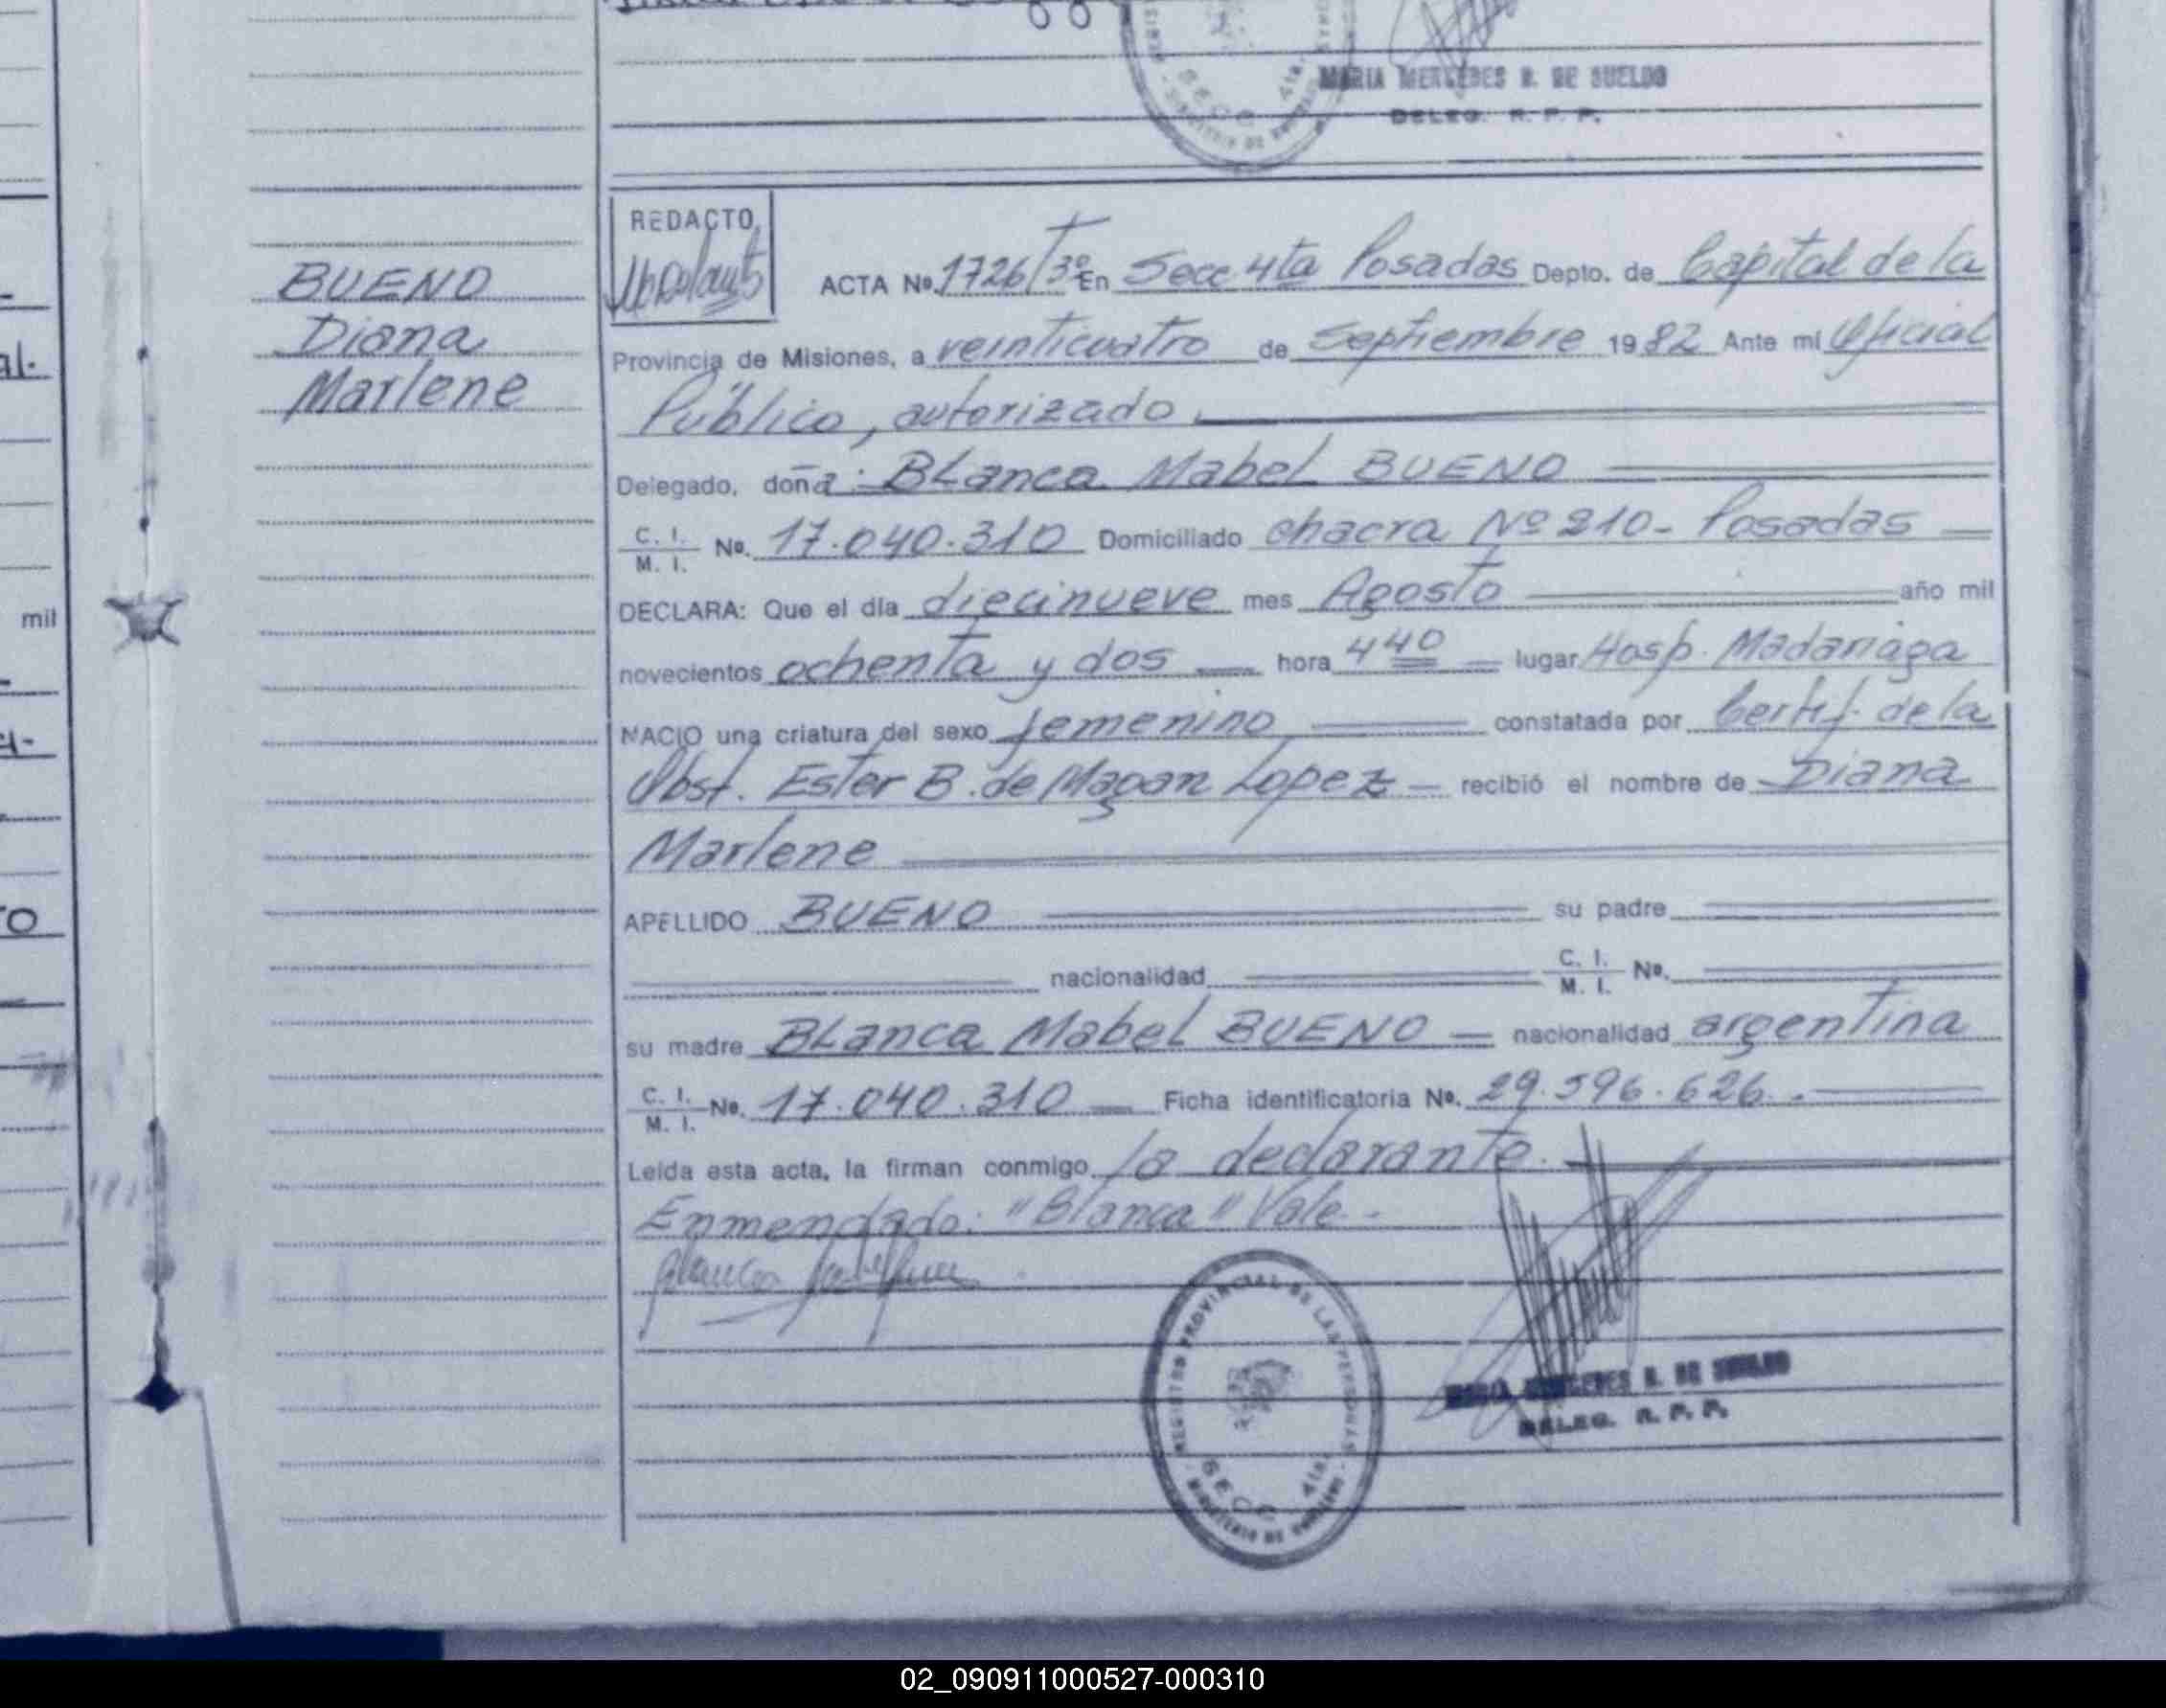 MARIA MERCEDES R. DE SUELDO
DELEG. R. P. P.
BUENO
Diana
Marlene
REDACTO
ACTA Nº 1726/Tº 3º En Secc 4ta Posadas Depto. de Capital de la
Provincia de Misiones, a veinticuatro de Septiembre 1982 Ante mi Oficial
Público, autorizado
Delegado, doña: BLanca Mabel BUENO
C. I. M. I. No. 17.040.310 Domiciliado chacra Nº 210- Posadas
DECLARA: Que el día diecinueve mes Agosto año mil
novecientos ochenta y dos hora 4 40 lugar Hosp. Madariaga
NACIO una criatura del sexo femenino constatada por Certif. de la
Obst. Ester B. de Magan Lopez recibió el nombre de Diana
Marlene
APELLIDO BUENO su padre
nacionalidad C. I. M. I. No.
su madre BLanca Mabel BUENO nacionalidad argentina
C. I. M. I. No. 17.040.310 Ficha identificatoria No. 29.596.626.-
Leída esta acta, la firman conmigo la declarante.
Enmendado: "Blanca" Vale.-
REGISTRO PROVINCIAL DE LAS PERSONAS
SECC 4ta.
MINISTERIO DE GOBIERNO
MARIA MERCEDES R. DE SUELDO
DELEG. R. P. P.
mil
02_090911000527-000310